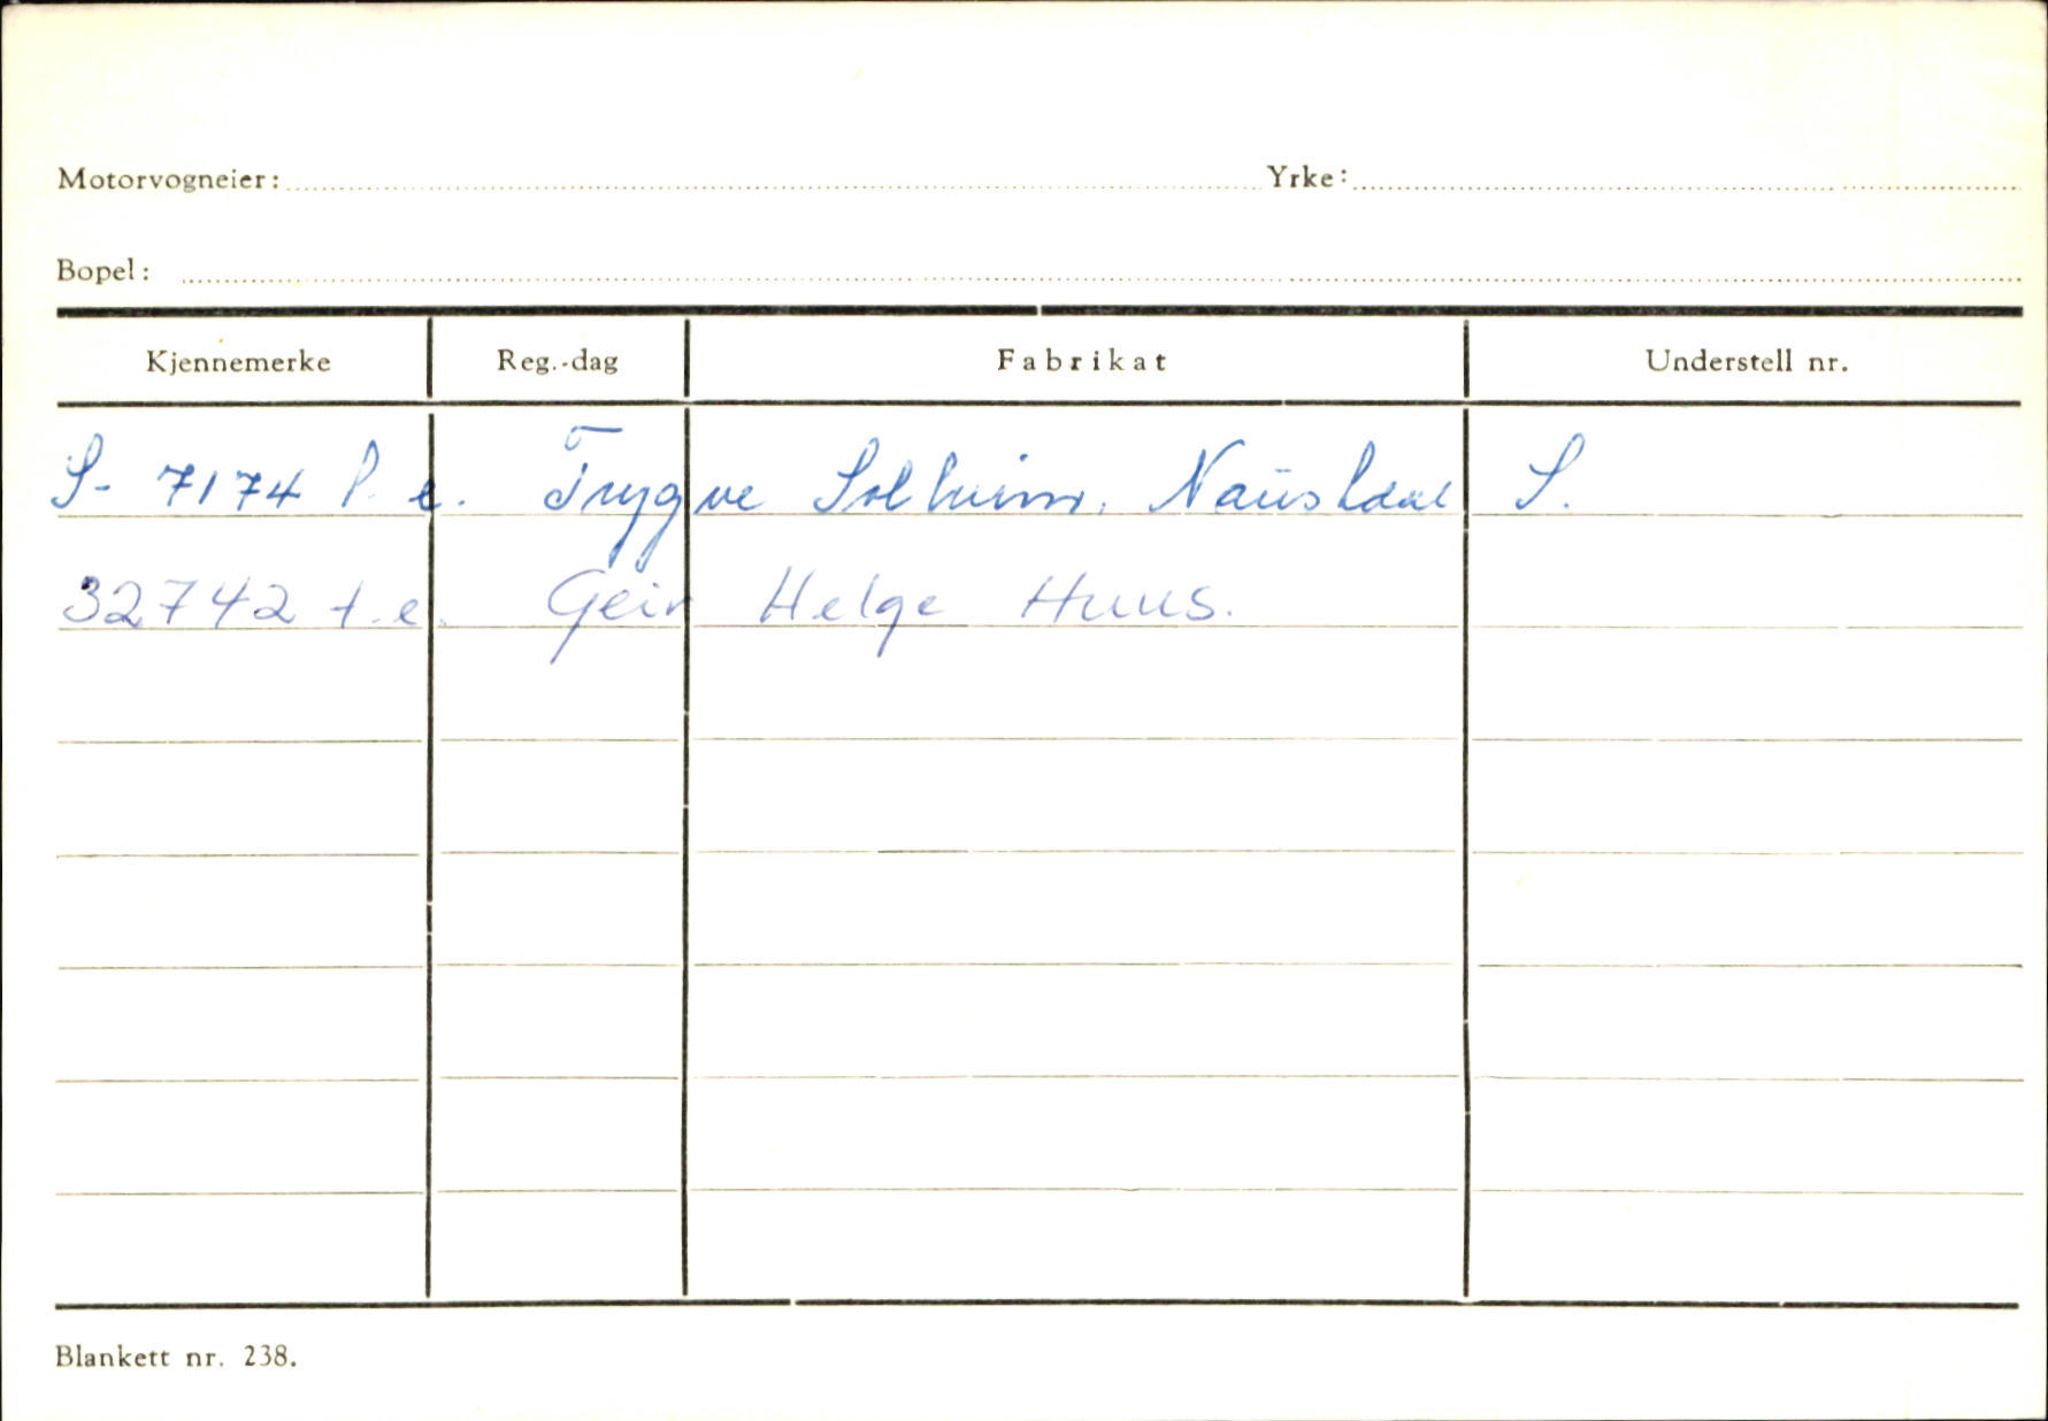 Motorvogneier: Yrke:
Bopel:
Kjennemerke Reg.-dag Fabrikat Understell nr.
S- 7174 f. e. Trygve Solheim, Naustdal S.
32742 t.e. Geir Helge Huus.
Blankett nr. 238.